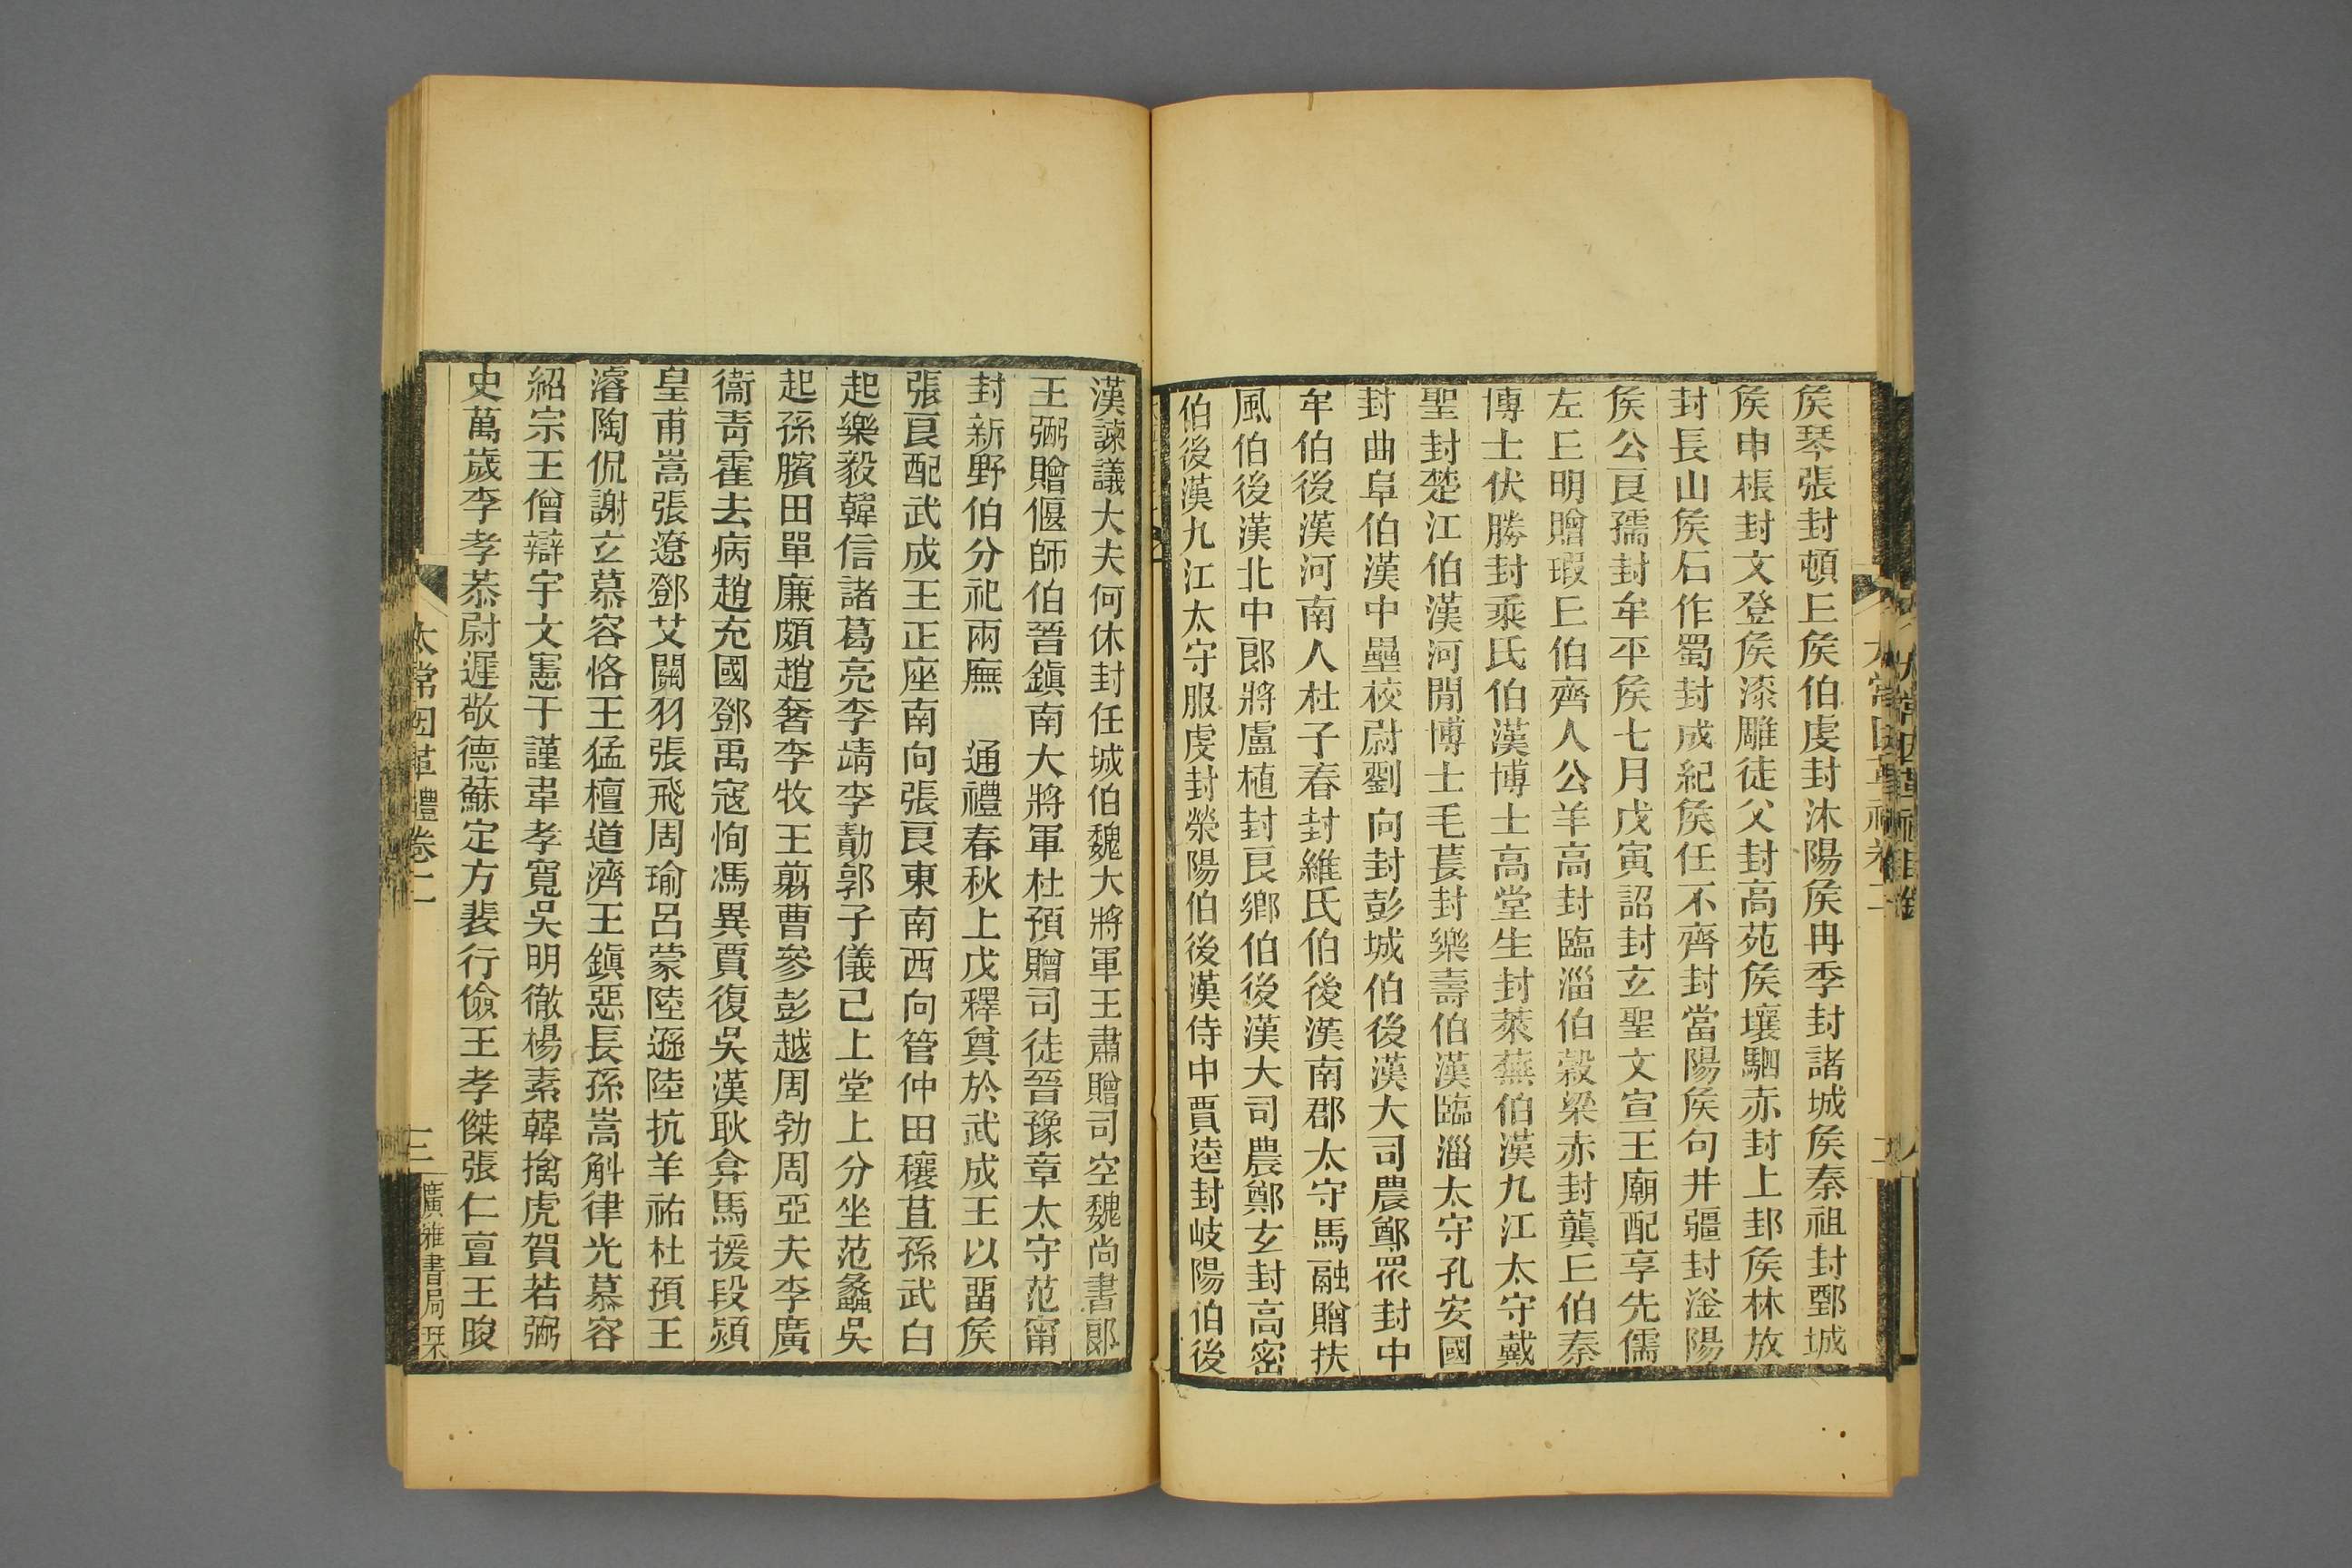 矦琴張封頓𠀉矦伯虔封沐陽矦冉季封諸城矦秦祖封鄄城
矦申棖封文登矦漆雕徒父封高苑矦壤駟赤封上邽矦林放
封長山矦石作蜀封成紀矦任不齊封當陽矦句井疆封滏陽
矦公良孺封牟平矦七月戊寅詔封玄聖文宣王廟配享先儒
左𠀉明贈瑕𠀉伯齊人公羊高封臨淄伯穀梁赤封龔𠀉伯秦
博士伏勝封乘氏伯漢博士高堂生封萊蕪伯漢九江太守戴
聖封楚江伯漢河閒博士毛萇封樂壽伯漢臨淄太守孔安國
封曲阜伯漢中壘校尉劉向封彭城伯後漢大司農鄭眾封中
牟伯後漢河南人杜子春封維氏伯後漢南郡太守馬融贈扶
風伯後漢北中郎將盧植封良鄉伯後漢大司農鄭玄封高密
伯後漢九江太守服虔封滎陽伯後漢侍中賈逵封岐陽伯後
漢諫議大夫何休封任城伯魏大將軍王肅贈司空魏尚書郎
王弼贈偃師伯晉鎮南大將軍杜預贈司徒晉豫章太守范甯
封新野伯分祀兩廡 通禮春秋上戊釋奠於武成王以畱矦
張良配武成王正座南向張良東南西向管仲田穰苴孫武白
起樂毅韓信諸葛亮李靖李勣郭子儀己上堂上分坐范蠡吳
起孫臏田單廉頗趙奢李牧王翦曹參彭越周勃周亞夫李廣
衞青霍去病趙充國鄧禹寇恂馮異賈復吳漢耿弇馬援段熲
皇甫嵩張遼鄧艾關羽張飛周瑜呂蒙陸遜陸抗羊祜杜預王
濬陶侃謝玄慕容恪王猛檀道濟王鎮惡長孫嵩斛律光慕容
紹宗王僧辯宇文憲于謹韋孝寬吳明徹楊素韓擒虎賀若弼
史萬歲李孝恭尉遲敬德蘇定方裴行儉王孝傑張仁亶王晙
太常因革禮卷二
三
廣雅書局栞